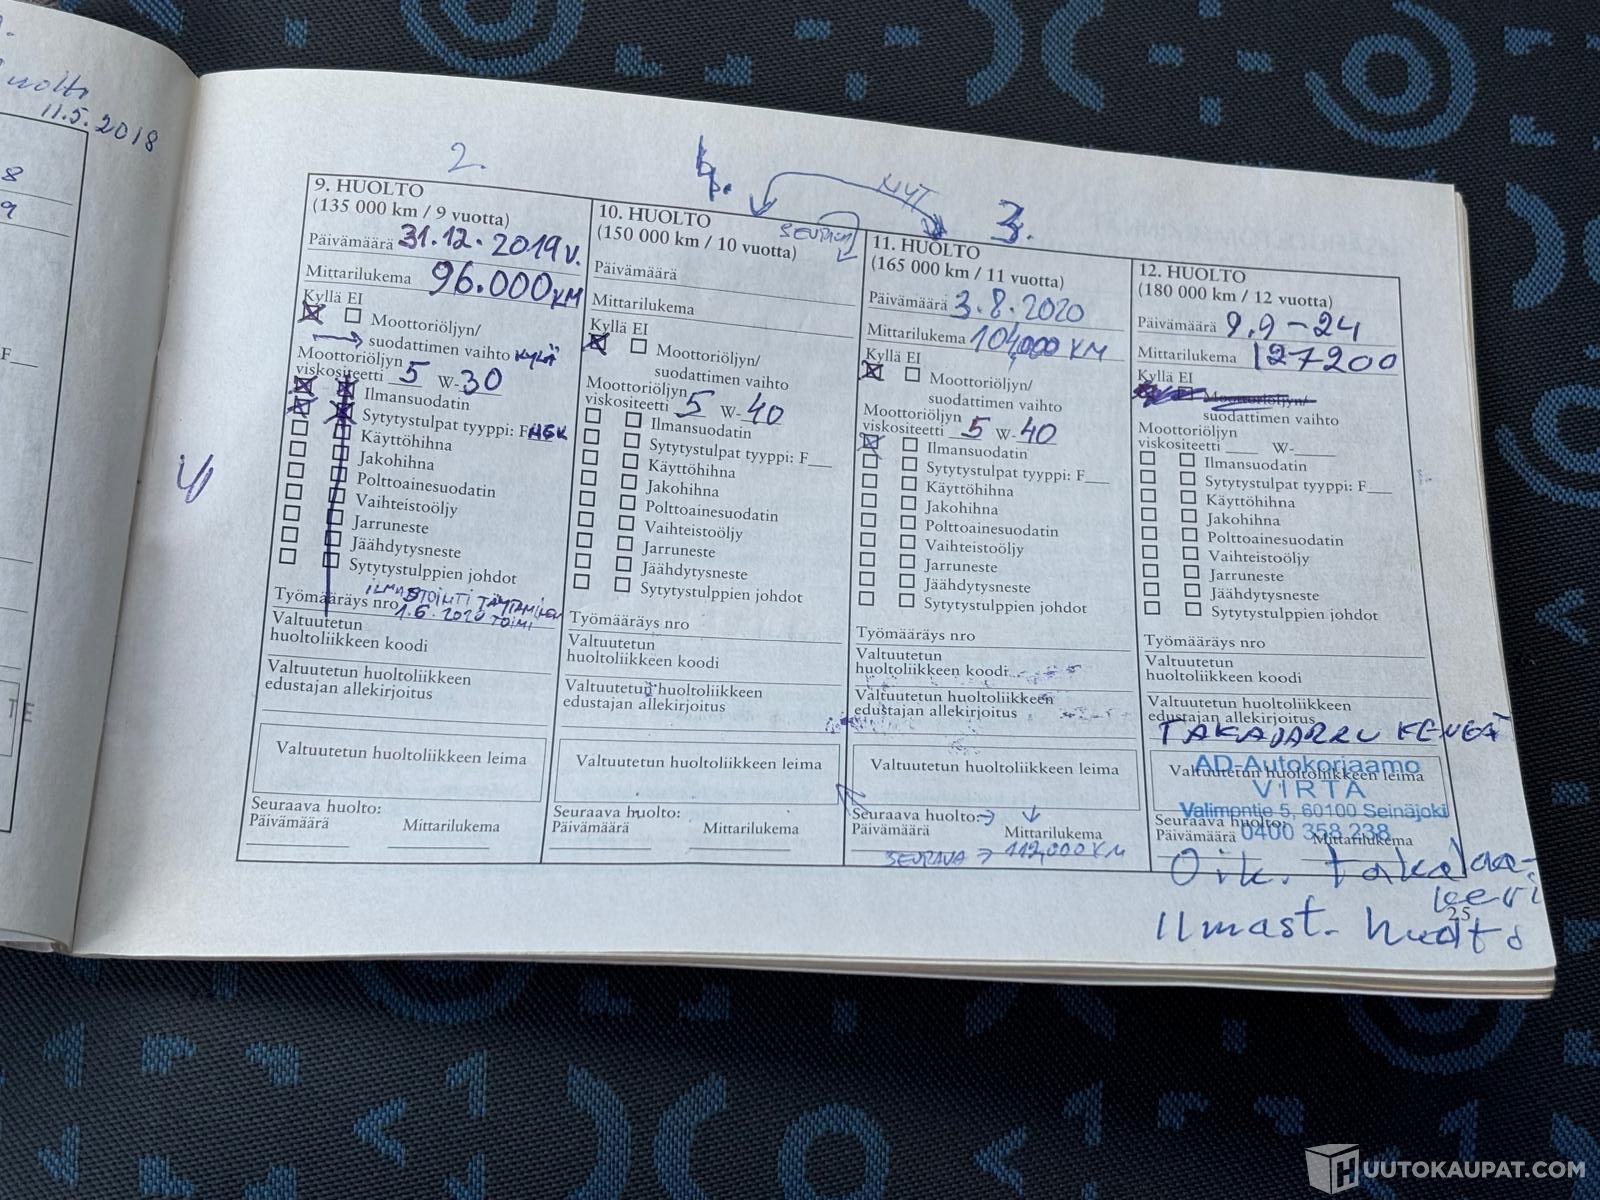 uolto
11.5.2018
8
9
F__
TE
2.
4.
NYT
3.
9. HUOLTO
(135 000 km / 9 vuotta)
Päivämäärä 31.12.2019 v.
Mittarilukema 96.000 KM
Kyllä EI
Moottoriöljyn/
suodattimen vaihto KYLÄ
Moottoriöljyn
viskositeetti 5 W-30
Ilmansuodatin
Sytytystulpat tyyppi: F NGK
Käyttöhihna
Jakohihna
Polttoainesuodatin
Vaihteistoöljy
Jarruneste
Jäähdytysneste
Sytytystulppien johdot
ILMASTOINTI TÄYTÄMINEN
Työmääräys nro 1.6.2020 TOIMI
Valtuutetun
huoltoliikkeen koodi
Valtuutetun huoltoliikkeen
edustajan allekirjoitus
Valtuutetun huoltoliikkeen leima
Seuraava huolto:
Päivämäärä Mittarilukema
10. HUOLTO
(150 000 km / 10 vuotta)
Päivämäärä
Mittarilukema
Kyllä EI
Moottoriöljyn/
suodattimen vaihto
Moottoriöljyn
viskositeetti 5 W-40
Ilmansuodatin
Sytytystulpat tyyppi: F__
Käyttöhihna
Jakohihna
Polttoainesuodatin
Vaihteistoöljy
Jarruneste
Jäähdytysneste
Sytytystulppien johdot
Työmääräys nro
Valtuutetun
huoltoliikkeen koodi
Valtuutetun huoltoliikkeen
edustajan allekirjoitus
Valtuutetun huoltoliikkeen leima
Seuraava huolto:
Päivämäärä Mittarilukema
11. HUOLTO
(165 000 km / 11 vuotta)
Päivämäärä 3.8.2020
Mittarilukema 104,000 KM
Kyllä EI
Moottoriöljyn/
suodattimen vaihto
Moottoriöljyn
viskositeetti 5 W-40
Ilmansuodatin
Sytytystulpat tyyppi: F__
Käyttöhihna
Jakohihna
Polttoainesuodatin
Vaihteistoöljy
Jarruneste
Jäähdytysneste
Sytytystulppien johdot
Työmääräys nro
Valtuutetun
huoltoliikkeen koodi
Valtuutetun huoltoliikkeen
edustajan allekirjoitus
Valtuutetun huoltoliikkeen leima
Seuraava huolto:
Päivämäärä Mittarilukema
SEURAVA → 112,000 KM
12. HUOLTO
(180 000 km / 12 vuotta)
Päivämäärä 9.9-24
Mittarilukema 127200
Kyllä EI
Moottoriöljyn/
suodattimen vaihto
Moottoriöljyn
viskositeetti ___ W-___
Ilmansuodatin
Sytytystulpat tyyppi: F__
Käyttöhihna
Jakohihna
Polttoainesuodatin
Vaihteistoöljy
Jarruneste
Jäähdytysneste
Sytytystulppien johdot
Työmääräys nro
Valtuutetun
huoltoliikkeen koodi
Valtuutetun huoltoliikkeen
edustajan allekirjoitus
TAKAJARRU KENGÄT
Valtuutetun huoltoliikkeen leima
AD-Autokorjaamo
VIRTA
Valimontie 5, 60100 Seinäjoki
0400 358 238
Seuraava huolto:
Päivämäärä Mittarilukema
Oik. takalaa-
keri
25
Ilmast. huolto
HUUTOKAUPAT.COM